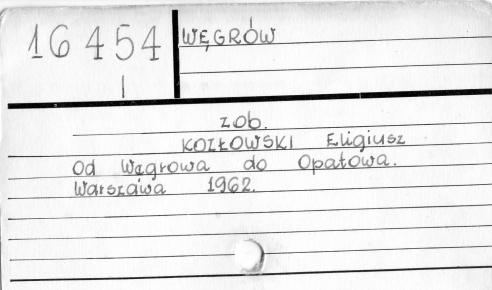 16 454
I
WĘGRÓW
zob.
KOZŁOWSKI Eligiusz
Od Węgrowa do Opatowa.
Warszawa 1962.